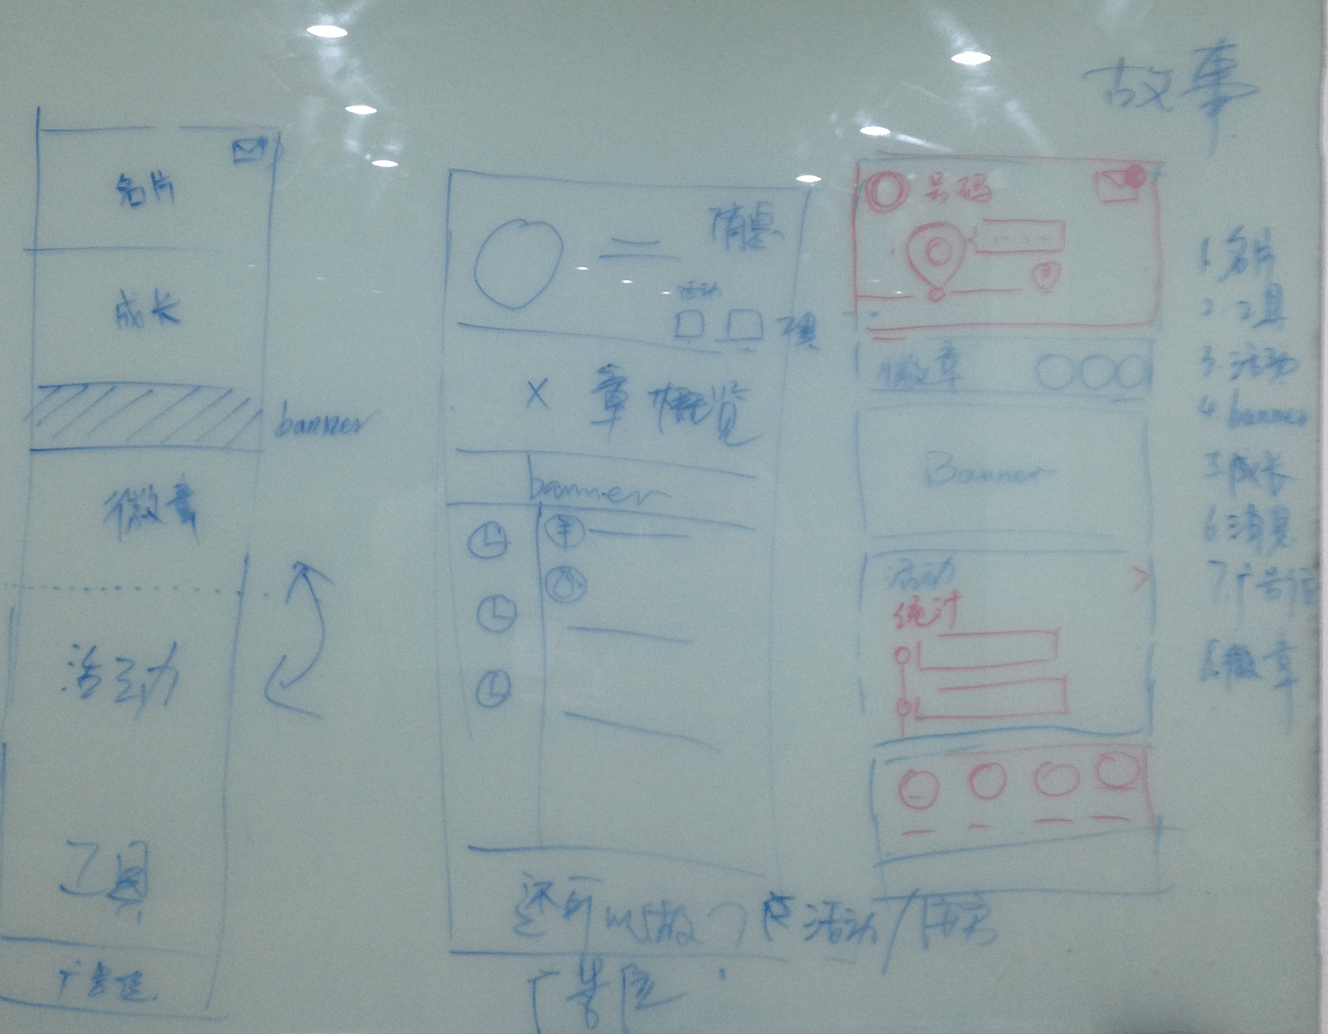 故事
名片
成长
banner
徽章
活动
工具
广告位
消息
活动
工具
X 章概览
banner
还可以做 活动
广告位
号码
徽章
Banner
活动
统计
1. 名片
2. 工具
3. 活动
4. banner
5. 成长
6. 消息
7. 广告位
8. 徽章